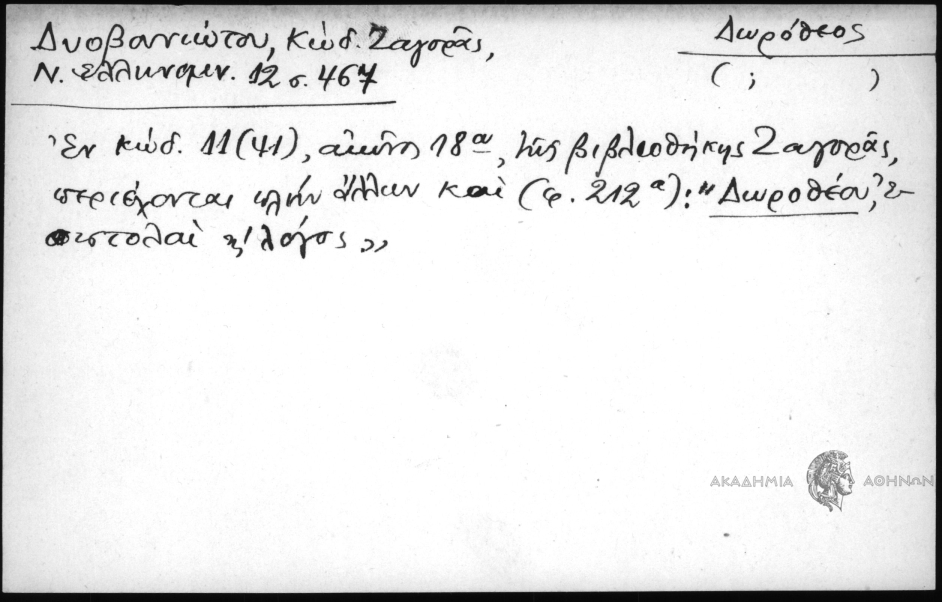 Δυοβουνιώτου, Κώδ. Ζαγορᾶς,
Ν. Ἑλληνομν. 12 σ. 467
Δωρόθεος
( ; )
Ἐν κώδ. 11 (41), αἰῶνος 18ου, τῆς βιβλιοθήκης Ζαγορᾶς,
περιέχονται πλὴν ἄλλων καὶ (φ. 212α): "Δωροθέου, ἐ-
πιστολαὶ κ' λόγος"
ΑΚΑΔΗΜΙΑ ΑΘΗΝΩΝ